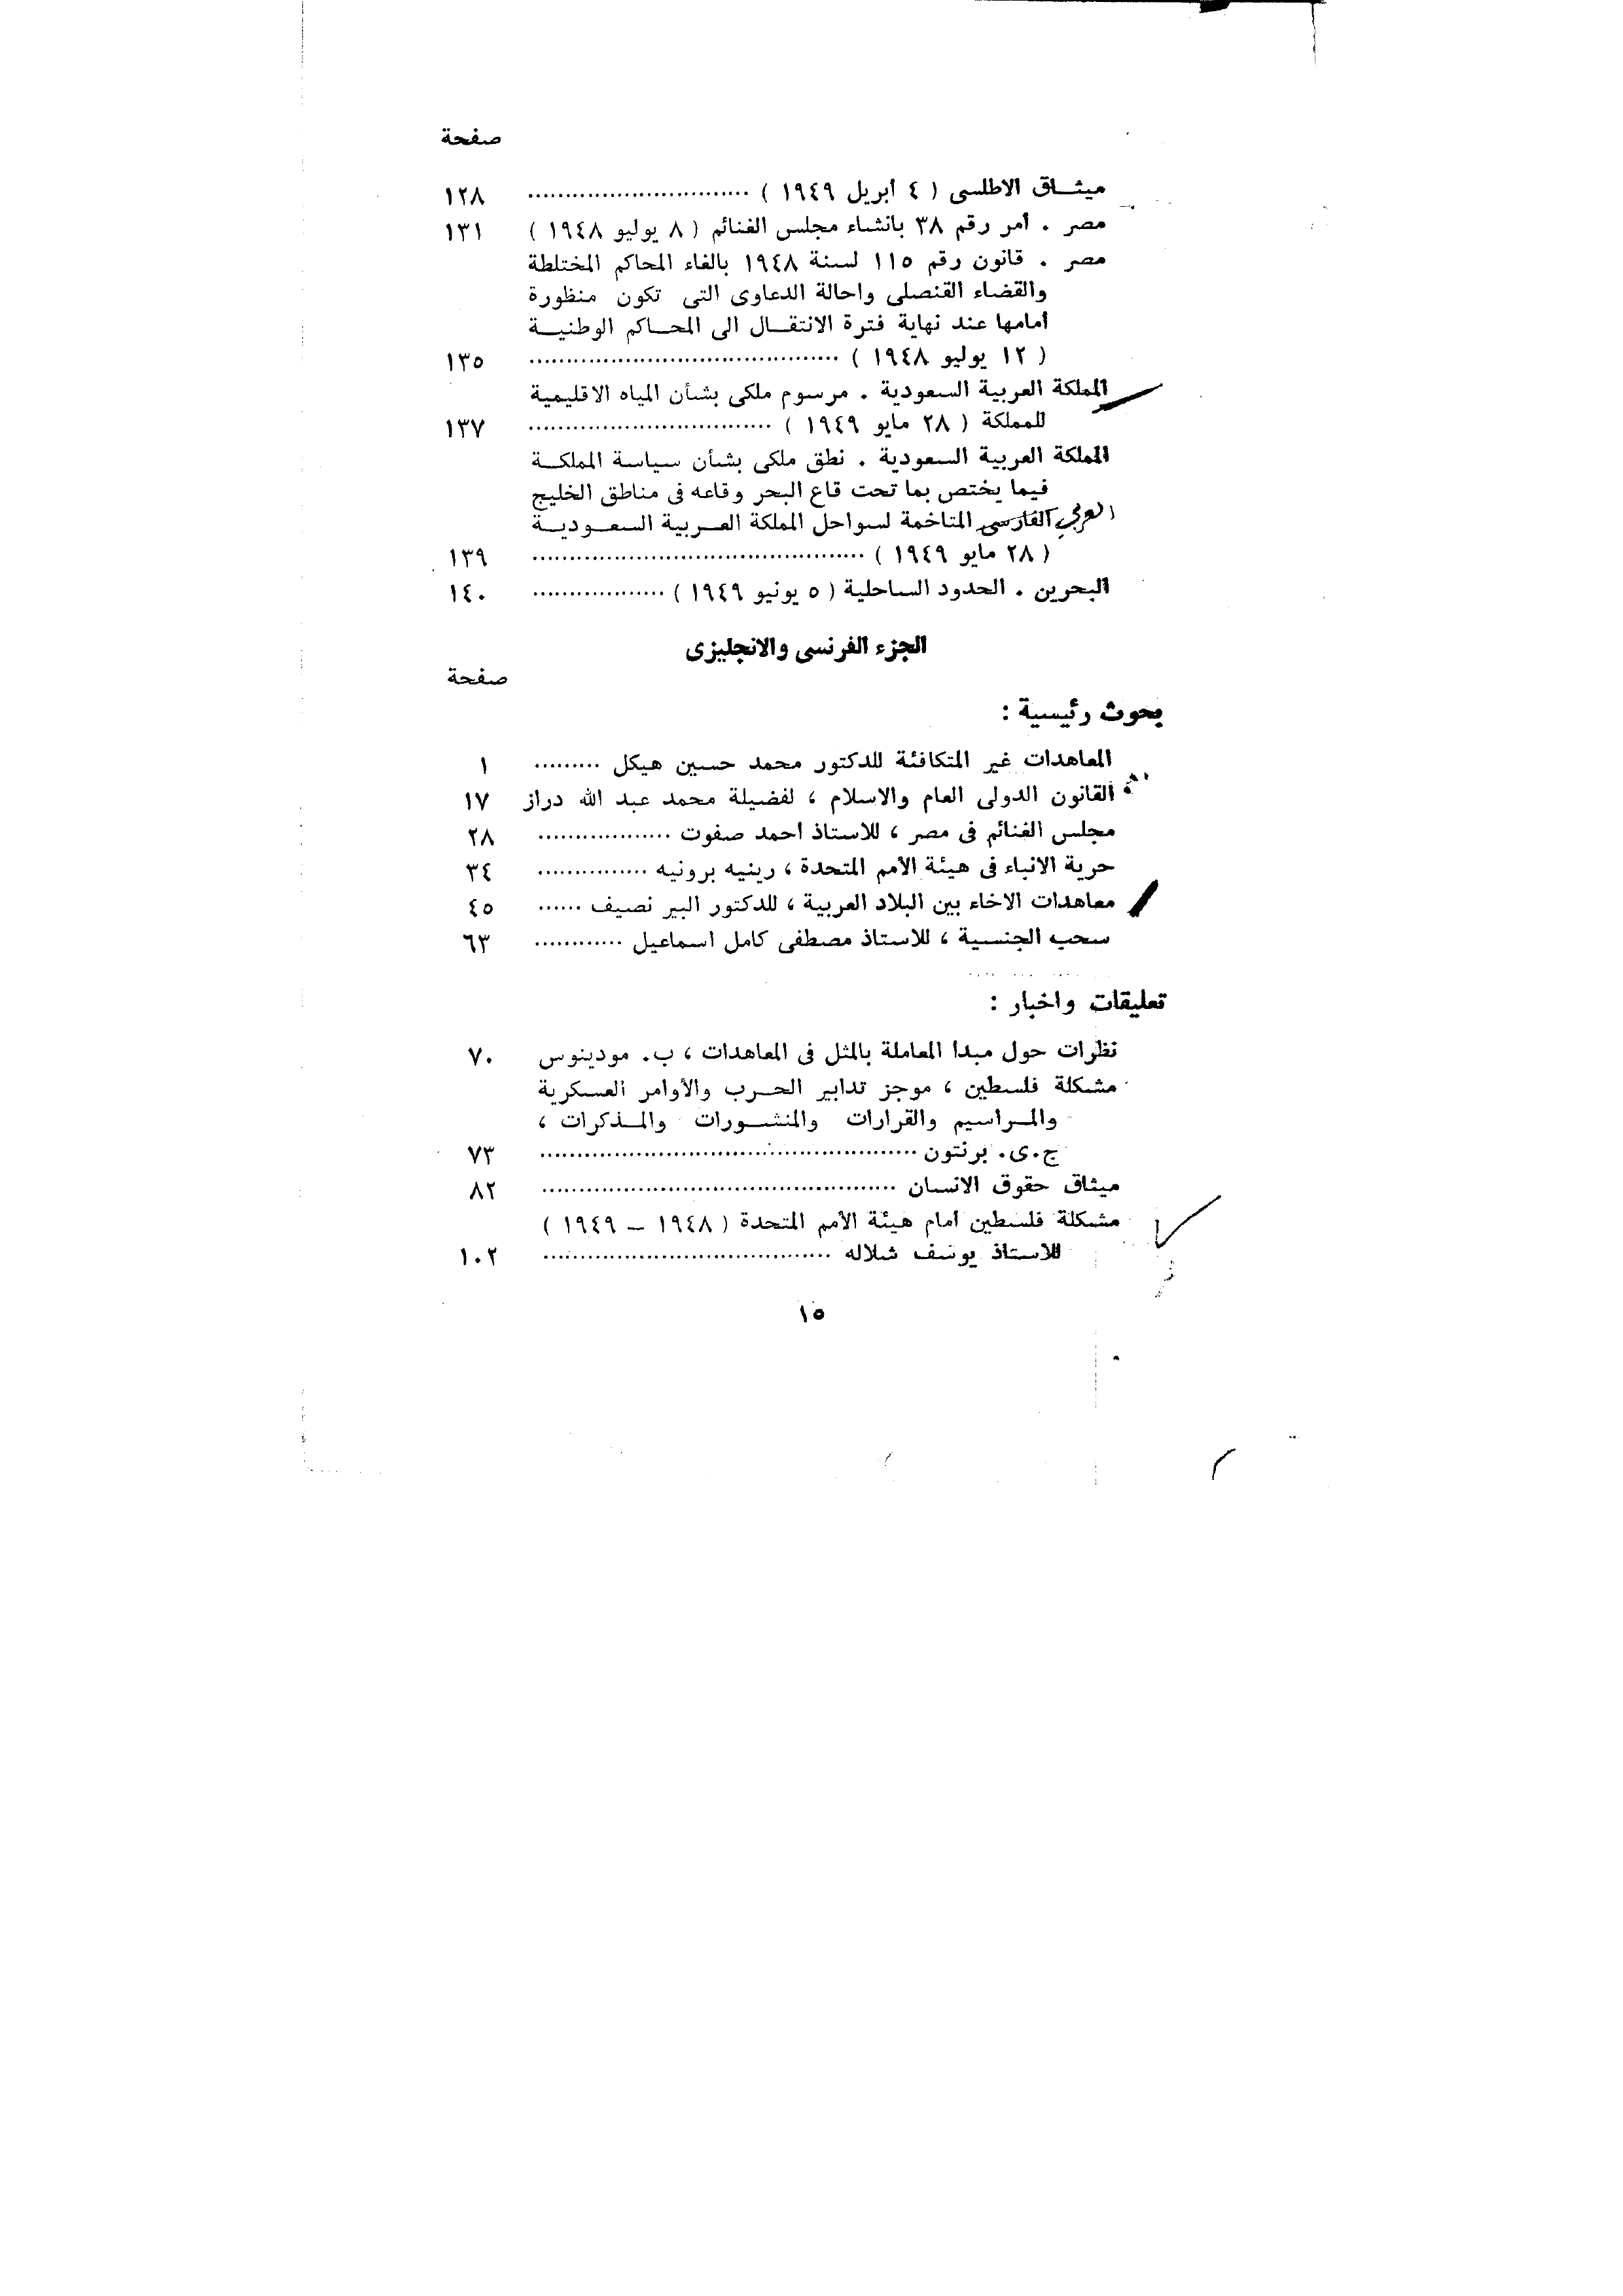 صفحة
ميثـاق الاطلسى ( ٤ أبريل ١٩٤٩ ) .............................. ١٢٨
مصر . أمر رقم ٣٨ بانشاء مجلس الغنائم ( ٨ يوليو ١٩٤٨ ) ١٣١
مصر . قانون رقم ١١٥ لسنة ١٩٤٨ بالغاء المحاكم المختلطة
والقضاء القنصلى واحالة الدعاوى التى تكون منظورة
أمامها عند نهاية فترة الانتقـال الى المحـاكم الوطنيـة
( ١٢ يوليو ١٩٤٨ ) .......................................... ١٣٥
المملكة العربية السعودية . مرسوم ملكى بشأن المياه الاقليمية
للمملكة ( ٢٨ مايو ١٩٤٩ ) ................................. ١٣٧
المملكة العربية السعودية . نطق ملكى بشأن سياسة المملكـة
فيما يختص بما تحت قاع البحر وقاعه فى مناطق الخليج
العربي الفارسى المتاخمة لسواحل المملكة العـربية السعـوديـة
( ٢٨ مايو ١٩٤٩ ) ............................................. ١٣٩
البحرين . الحدود الساحلية ( ٥ يونيو ١٩٤٩ ) .................. ١٤٠
الجزء الفرنسى والانجليزى
صفحة
بحوث رئيسية :
المعاهدات غير المتكافئة للدكتور محمد حسين هيكل ......... ١
القانون الدولى العام والاسلام ، لفضيلة محمد عبد الله دراز ١٧
مجلس الغنائم فى مصر ، للاستاذ أحمد صفوت .................. ٢٨
حرية الانباء فى هيئة الأمم المتحدة ، رينيه برونيه ............... ٣٤
معاهدات الاخاء بين البلاد العربية ، للدكتور البير نصيف ...... ٤٥
سحب الجنسية ، للاستاذ مصطفى كامل اسماعيل ............ ٦٣
تعليقات واخبار :
نظرات حول مبدأ المعاملة بالمثل فى المعاهدات ، ب. مودينوس ٧٠
مشكلة فلسطين ، موجز تدابير الحـرب والأوامر العسكرية
والمـراسيم والقرارات والمنشـورات والمـذكرات ،
ج.ى. برنتون ................................................... ٧٣
ميثاق حقوق الانسان ................................................ ٨٢
مشكلة فلسطين أمام هيئة الأمم المتحدة ( ١٩٤٨ – ١٩٤٩ )
للاستاذ يوسف شلاله ....................................... ١٠٢
١٥